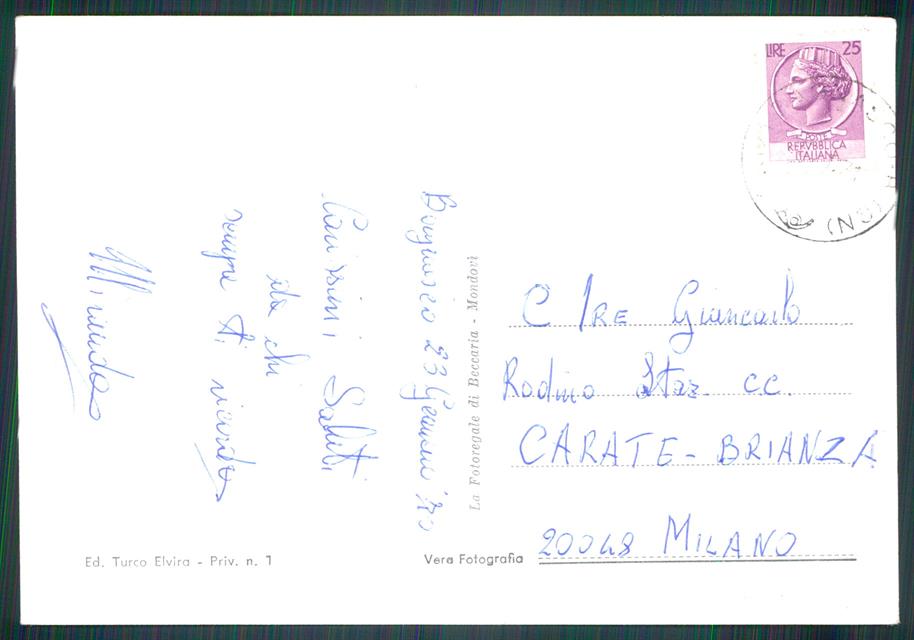 LIRE 25
POSTE
REPVBBLICA
ITALIANA
(NO)
23 Gennaio '70
Carissimi Saluti
da chi
sempre ti ricorda
La Fotoregale di Beccaria - Mondovì
C /RE Giancarlo
Rodino Staz. CC.
CARATE - BRIANZA
20048 MILANO
Ed. Turco Elvira - Priv. n. 1
Vera Fotografia